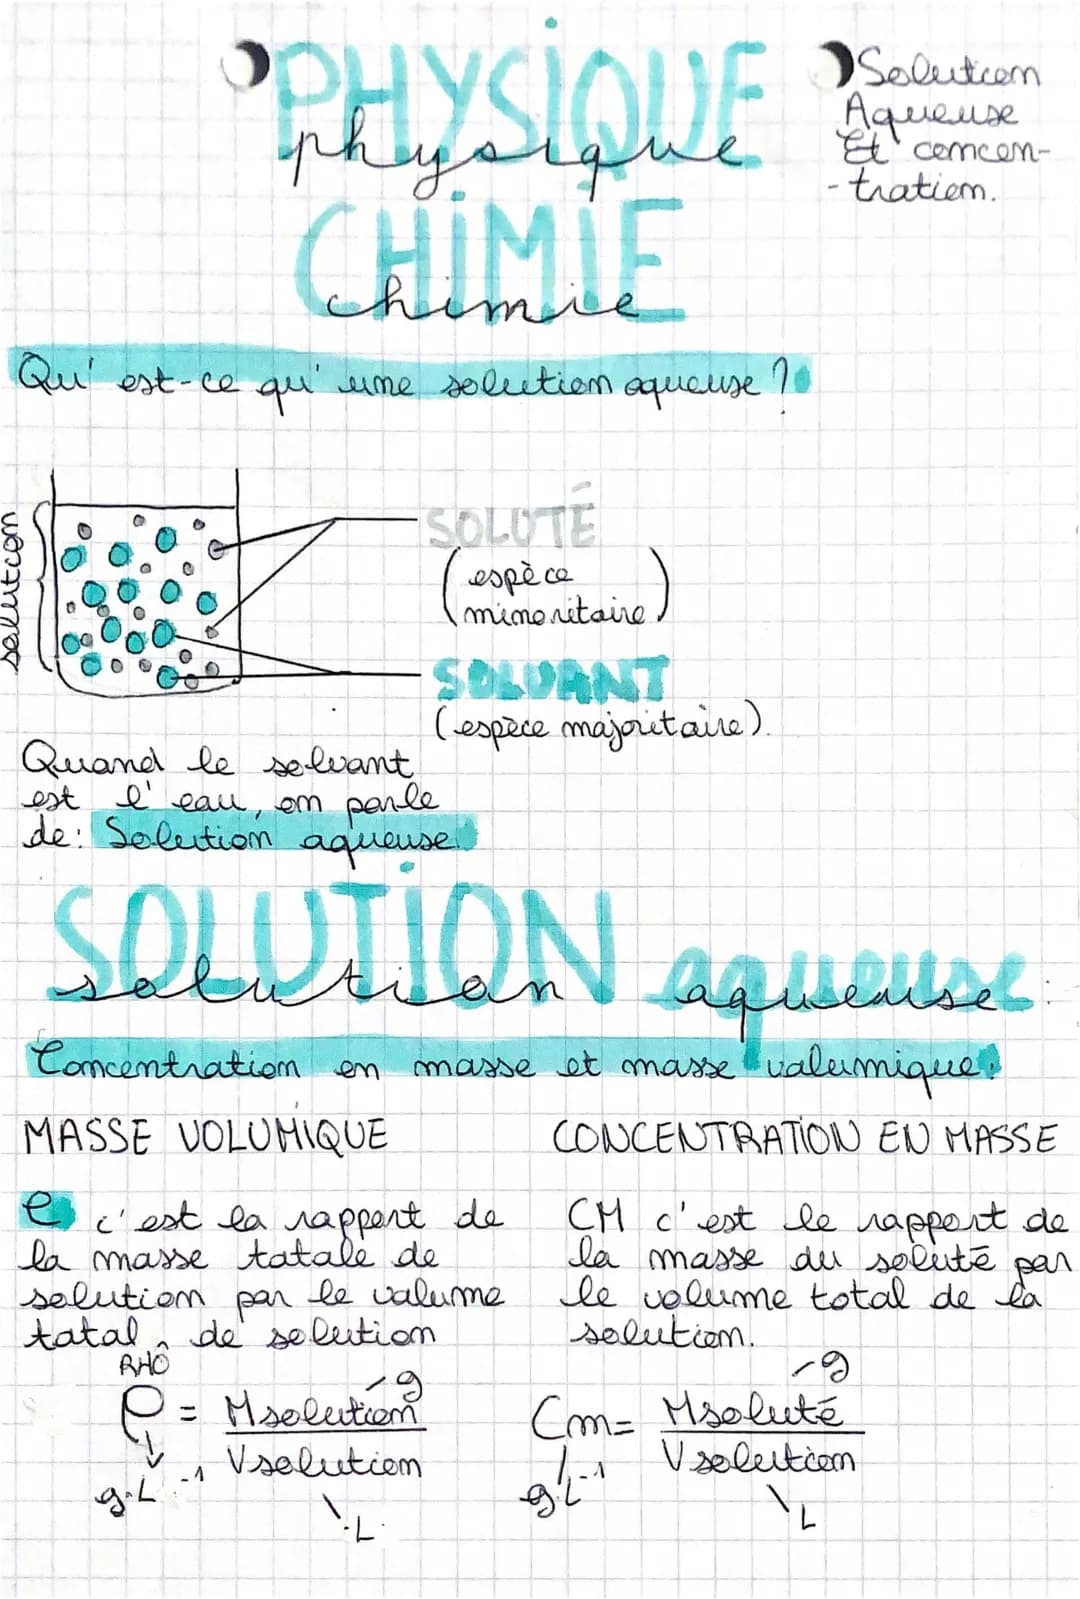 PHYSIQUE
physique
CHIMIE
chimie
Solution
Aqueuse
Et concen-
-tration.
Qu'est-ce qu'une solution aqueuse ?
solution
SOLUTÉ
(espèce
minoritaire)
SOLVANT
(espèce majoritaire).
Quand le solvant
est l'eau, on parle
de: Solution aqueuse.
SOLUTION aqueuse
solution aqueuse
Concentration en masse et masse volumique.
MASSE VOLUMIQUE
ρ c'est la rapport de
la masse totale de
solution par le volume
total de solution
RHÔ
ρ = Msolution - g
Vsolution
g.L⁻¹
L
CONCENTRATION EN MASSE
CM c'est le rapport de
la masse du soluté par
le volume total de la
solution.
Cm = Msoluté - g
Vsolution
g.L⁻¹
L